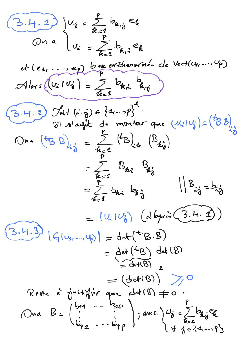 3.4.1
On a { u_j = Σ_{k=1}^{p} b_{kj} e_k
u_i = Σ_{k=1}^{p} b_{ki} e_k
et (e_1, ..., e_p) base orthonormée de Vect(u_1, ..., u_p)
Alors (u_i|u_j) = Σ_{k=1}^{p} b_{ki} b_{kj}
3.4.2 Soit (i,j) ∈ {1...p}^2
Il s'agit de montrer que (u_i|u_j) = (ᵗB B)_{ij}
On a (ᵗB B)_{ij} = Σ_{k=1}^{p} (ᵗB)_{ik} (B)_{kj}
= Σ_{k=1}^{p} B_{ki} B_{kj}
= Σ_{k=1}^{p} b_{ki} b_{kj} || B_{ij} = b_{ij}
= (u_i|u_j) (d'après 3.4.1)
3.4.3 |G(u_1, ..., u_p)| = det(ᵗB.B)
= det(ᵗB) det(B)
= det(B)
= (det(B))^2 ≥ 0
Reste à justifier que det(B) ≠ 0.
On a B = (b_{11} ... b_{1p} ; b_{p1} ... b_{pp}) ; avec { u_j = Σ_{k=1}^{p} b_{kj} e_k
∀ j ∈ {1...p}